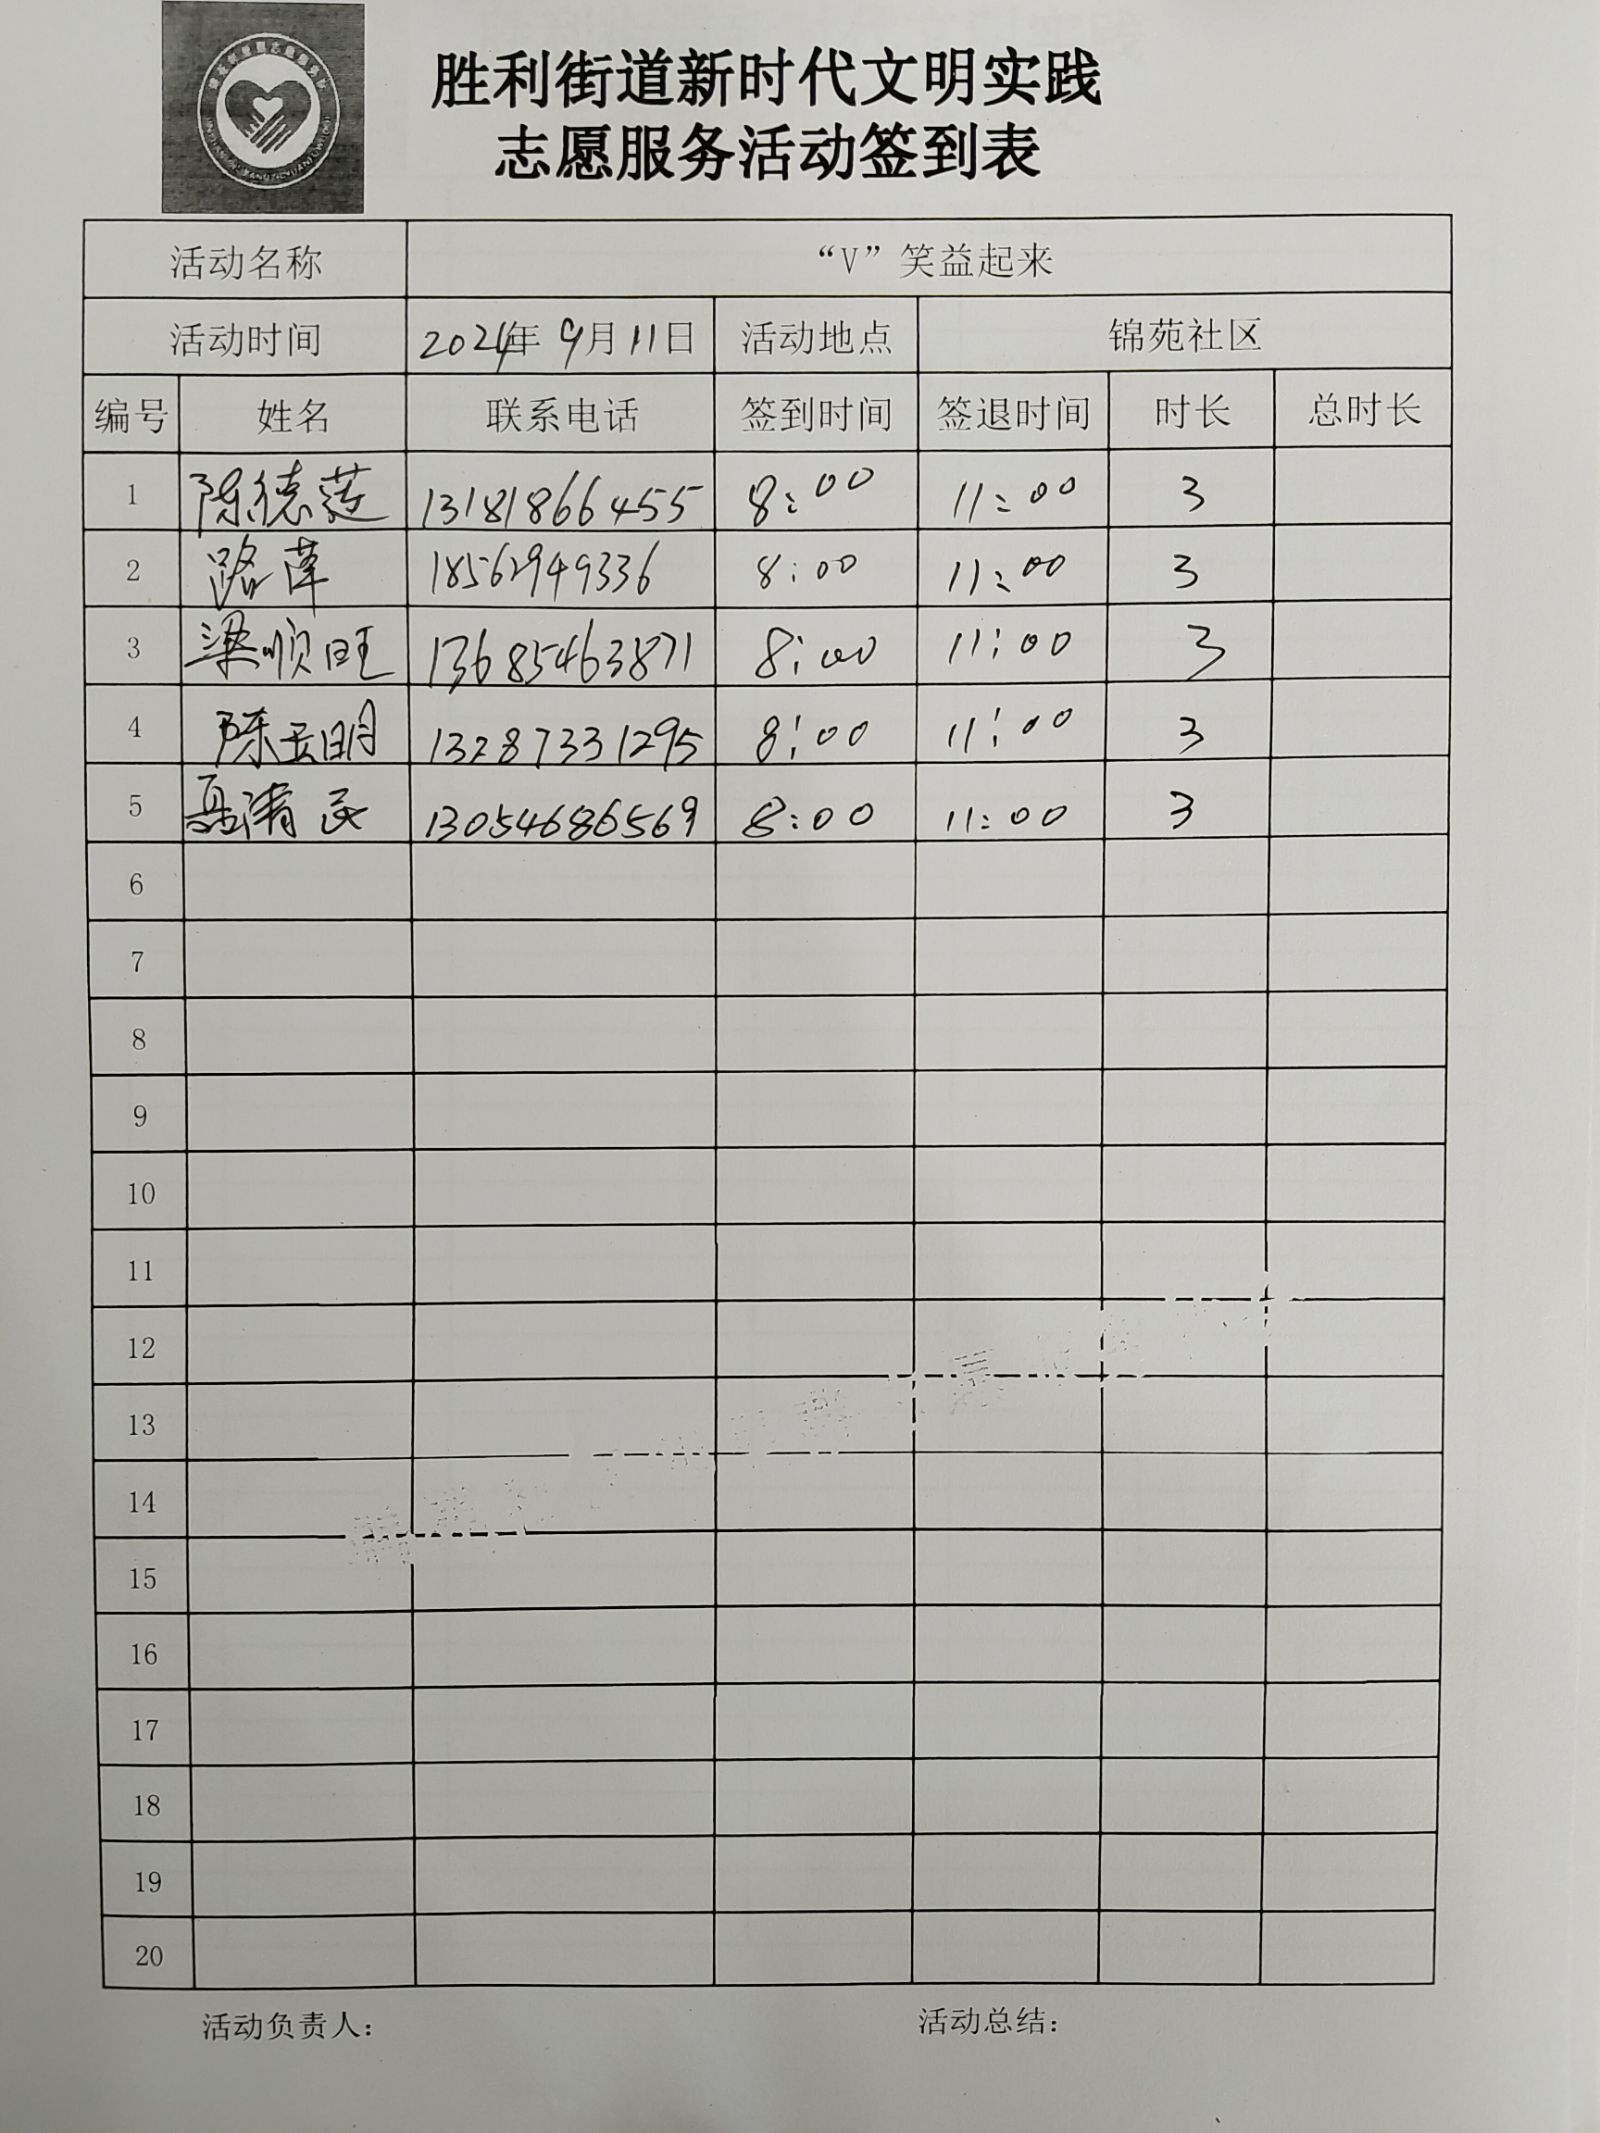 胜利街道新时代文明实践
志愿服务活动签到表
活动名称 “V”笑益起来
活动时间 2024年 9月11日 活动地点 锦苑社区
编号 姓名 联系电话 签到时间 签退时间 时长 总时长
1 陈德莲 13181866455 8:00 11:00 3
2 路萍 18562949336 8:00 11:00 3
3 梁顺旺 13685463871 8:00 11:00 3
4 陈云明 13287331295 8:00 11:00 3
5 聂清民 13054686569 8:00 11:00 3
6
7
8
9
10
11
12
13
14
15
16
17
18
19
20
活动负责人： 活动总结：